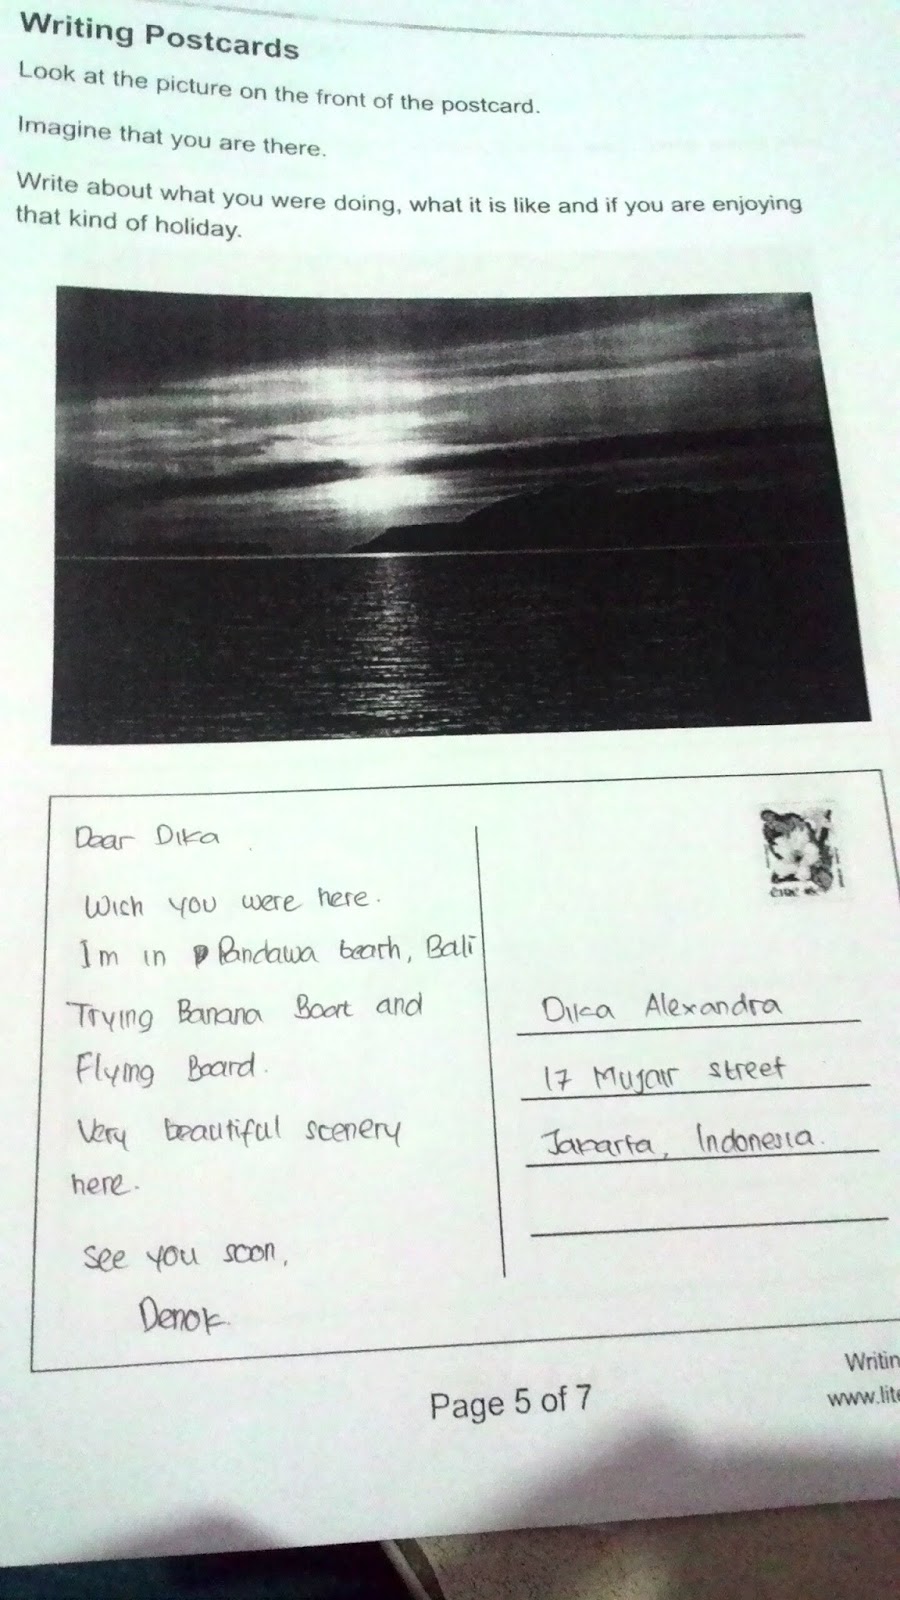 Writing Postcards
Look at the picture on the front of the postcard.
Imagine that you are there.
Write about what you were doing, what it is like and if you are enjoying
that kind of holiday.
Dear Dika
Wish you were here.
Im in Pandawa beach, Bali
Trying Banana Boat and
Flying Board.
Very beautiful scenery
here.
See you soon,
Denok
Dika Alexandra
17 Mujair street
Jakarta, Indonesia.
Page 5 of 7
Writin
www.lite